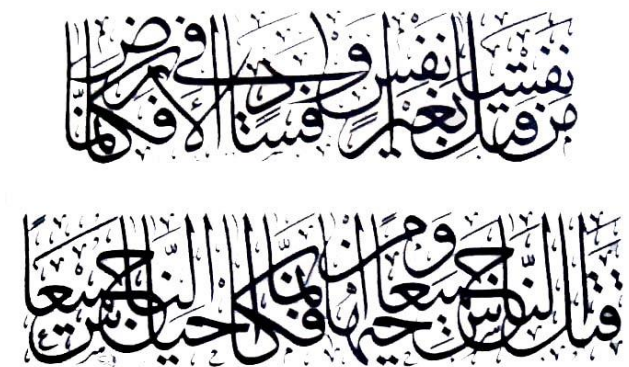 من قتل نفسا بغير نفس او فساد في الارض فكانما
قتل الناس جميعا ومن احياها فكانما احيا الناس جميعا